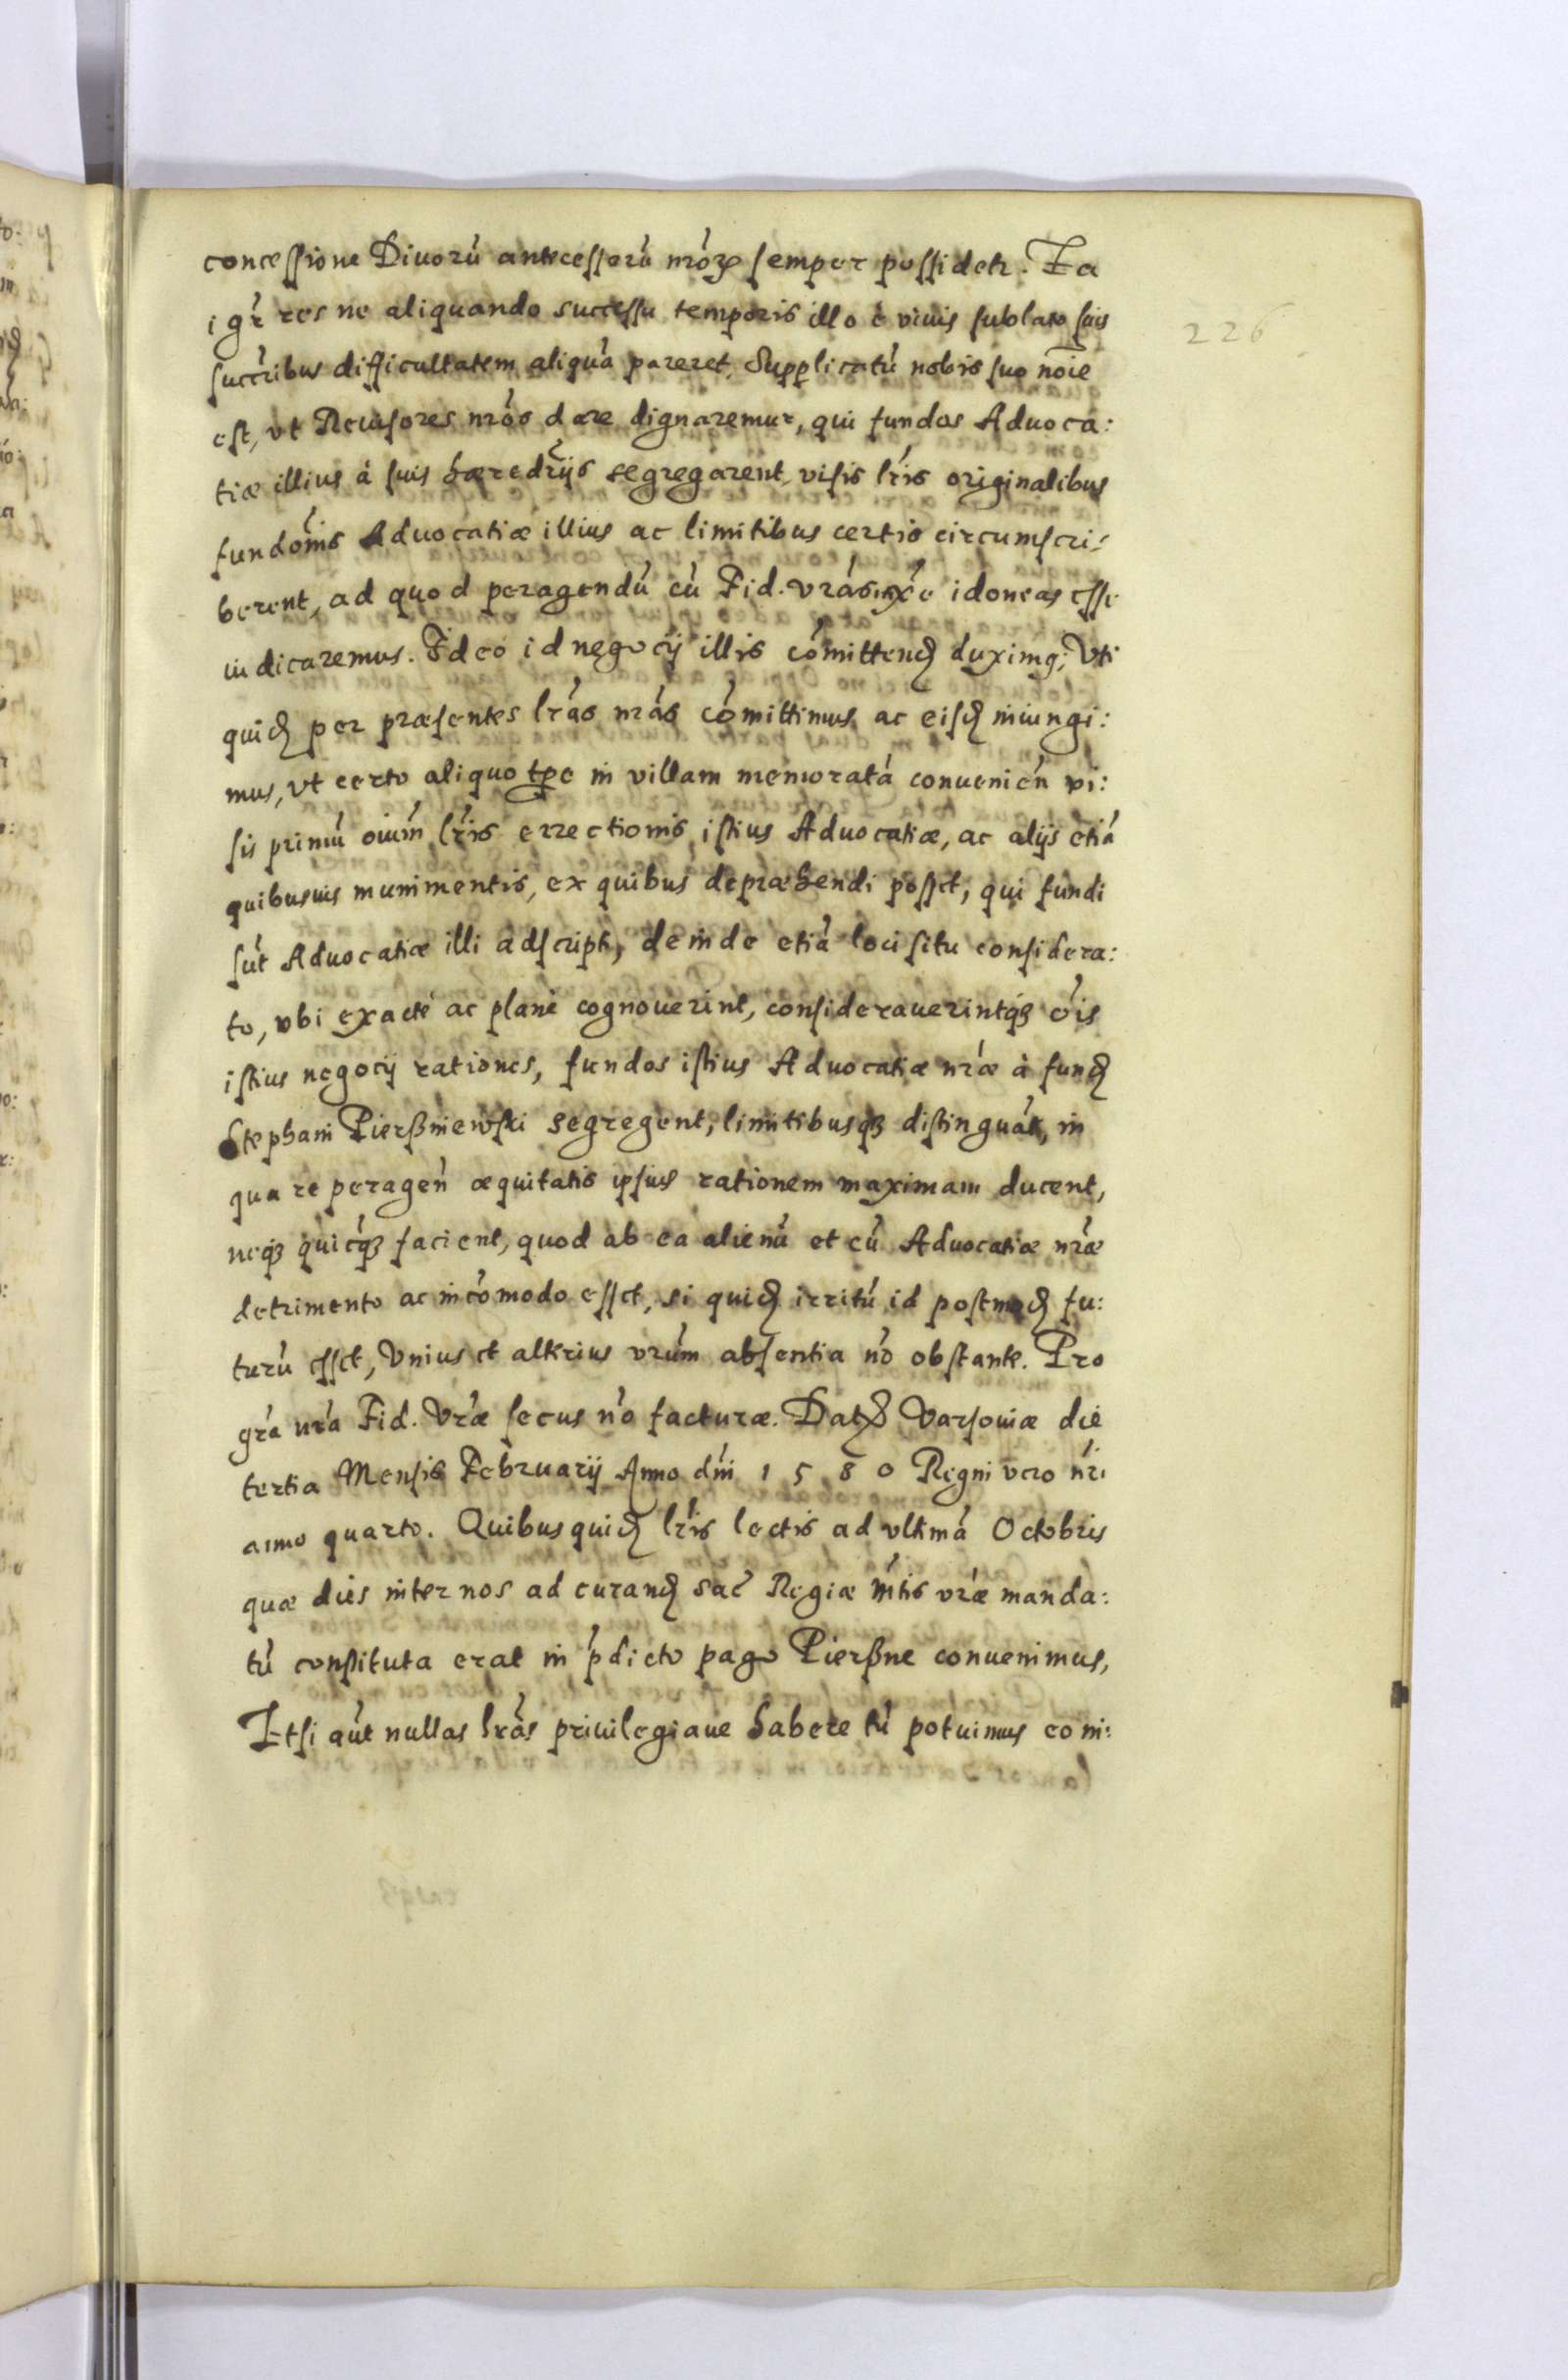 concessione Divorũ antecessorũ nrõrꝫ semper possidetr. Ea
igr̃ res ne aliquando successu temporis illo è vivis sublato suis
succr̃ibus difficultatem aliquã pareret. Supplicatũ nobis suo nõie
est, vt Revisores nrõs dare dignaremur, qui fundos Advoca:
tiæ illius à suis hæredr̃ijs segregarent, visis lr̃is originalibus
fundõnis Advocatiæ illius ac limitibus certis circumscri:
berent, ad quod peragendũ cũ Fid. vrãs idoneas esse
iudicaremus. Ideo id negocij illis cõmittend duximq; Vti
quid per præsentes lrãs nrãs cõmittimus ac eisd iniungi:
mus, vt certo aliquo tpe in villam memoratã conveniẽn vi:
sis primũ oiũm lr̃is errectionis istius Advocatiæ, ac alijs etiã
quibusuis munimentis, ex quibus depræhendi posset, qui fundi
sũt Advocatiæ illi adscripti, deinde etiã loci situ considera:
to, vbi exacté ac planè cognoverint, consideraverintqꝫ õis
istius negocij rationes, fundos istius Advocatiæ nrãe à fund
Stephani Pierßniewski segregent, limitibusqꝫ distinguãt, in
qua re peragen̄ æquitatis ipsius rationem maximam ducent,
neqꝫ quicqꝫ facient, quod ab ea alienũ et cũ Advocatiæ nrãe
detrimento ac incõmodo esset, si quid irritũ id postmod fu:
turũ esset, Vnius et alterius vrũm absentia nõ obstante. Pro
grã nrã Fid. Vrãe secus nõ facturæ. Dat Varsoviæ die
tertia Mensis Februarij Anno dñi 1580 Regni vero nr̃i
anno quarto. Quibus quid lr̃is lectis ad vltimã Octobris
quæ dies inter nos ad curand Sac̃ Regiæ M̃tis vrãe manda:
tũ constituta erat in p̃dicto pago Pierßne convenimus,
Etsi aũt nullas lrãs privilegiaue habere tũ potuimus eo ni:
226